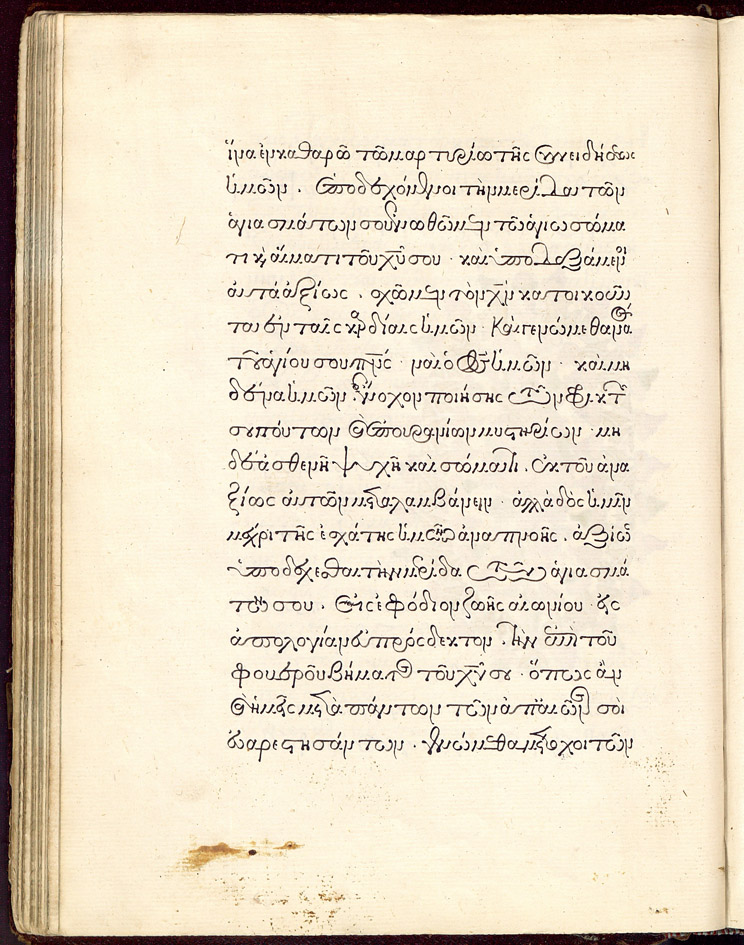 ἵνα ἐν καθαρῶ τῶ μαρτυρίω τῆς συνειδήσεως
ἡμῶν . ὑποδεχόμενοι τὴν μερίδα τῶν
ἁγιασμάτων σου ἑνωθῶμεν τῶ ἁγίω σώμα
τι κ αἵματι τοῦ χῦ σου · καὶ ὑποδεξάμενοι
αὐτὰ ἀξίως . σχῶμεν τὸν χν κατοικοῦν
τα ἐν ταῖς καρδίαις ἡμῶν · Καὶ γενώμεθα ναὸς
τοῦ ἁγίου σου πνς · ναὶ ὁ θς ἡμῶν · καὶ μη
δένα ἡμῶν ἔνοχον ποιήσης τῶν φρικτῶν
σου τούτων ἐπουρανίων μυστηρίων · μη
δὲ ἀσθενῆ ψυχῆ καὶ σώματι . ἐκ τοῦ ἀνα
ξίως αὐτῶν μεταλαμβάνειν · ἀλλὰ δὸς ἡμῖν
μέχρι τῆς ἐσχάτης ἡμῶν ἀναπνοῆς . ἀξίως
ὑποδέχεσθαι τὴν μερίδα τῶν ἁγιασμά
των σου . εἰς ἐφόδιον ζωῆς αἰωνίου · εἰς
ἀπολογίαν εὐπρόσδεκτον . τὴν ἐπὶ τοῦ
φοβεροῦ βήματος τοῦ χῦ σου · ὅπως ἂν
ἡμεῖς μετὰ πάντων τῶν ἀπ' αἰῶνός σοι
εὐαρεστησάντων · γενώμεθα μέτοχοι τῶν